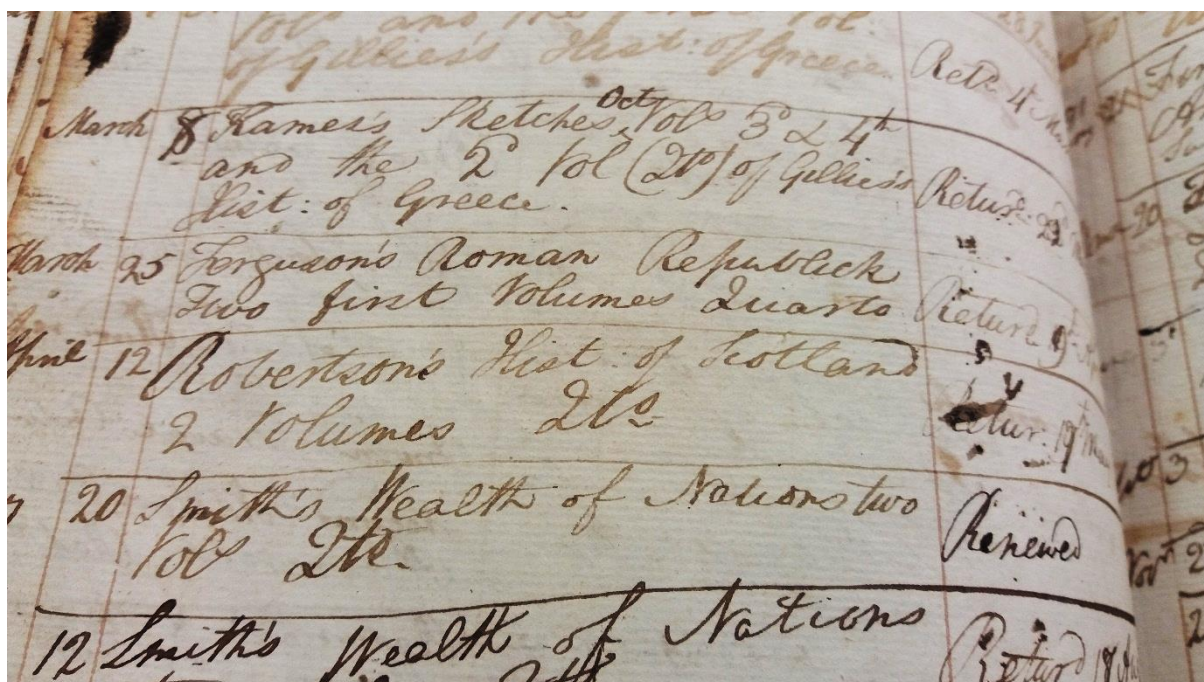 Vol and the
of Gillies's Hist of Greece. Ret
March 8 Kames's Sketches, Octo Vols 3d & 4th
and the 2d Vol (2to) of Gillies's
Hist: of Greece. Retur
March 25 Ferguson's Roman Republick
Two first Volumes Quarto Return
April 12 Robertson's Hist: of Scotland
2 Volumes 2to
20 Smith's Wealth of Nations two Renewed
Vols 2to.
12 Smith's Wealth of Nations
Return 18